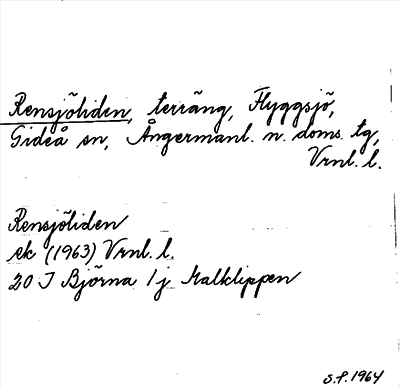 Rensjöliden, terräng, Flyggsjö,
Gideå sn, Ångermanl. n. doms. tg,
Vrnl. l.
Rensjöliden
ek (1963) Vrnl. l.
20 I Björna 1 j Malklippen
S.P. 1964